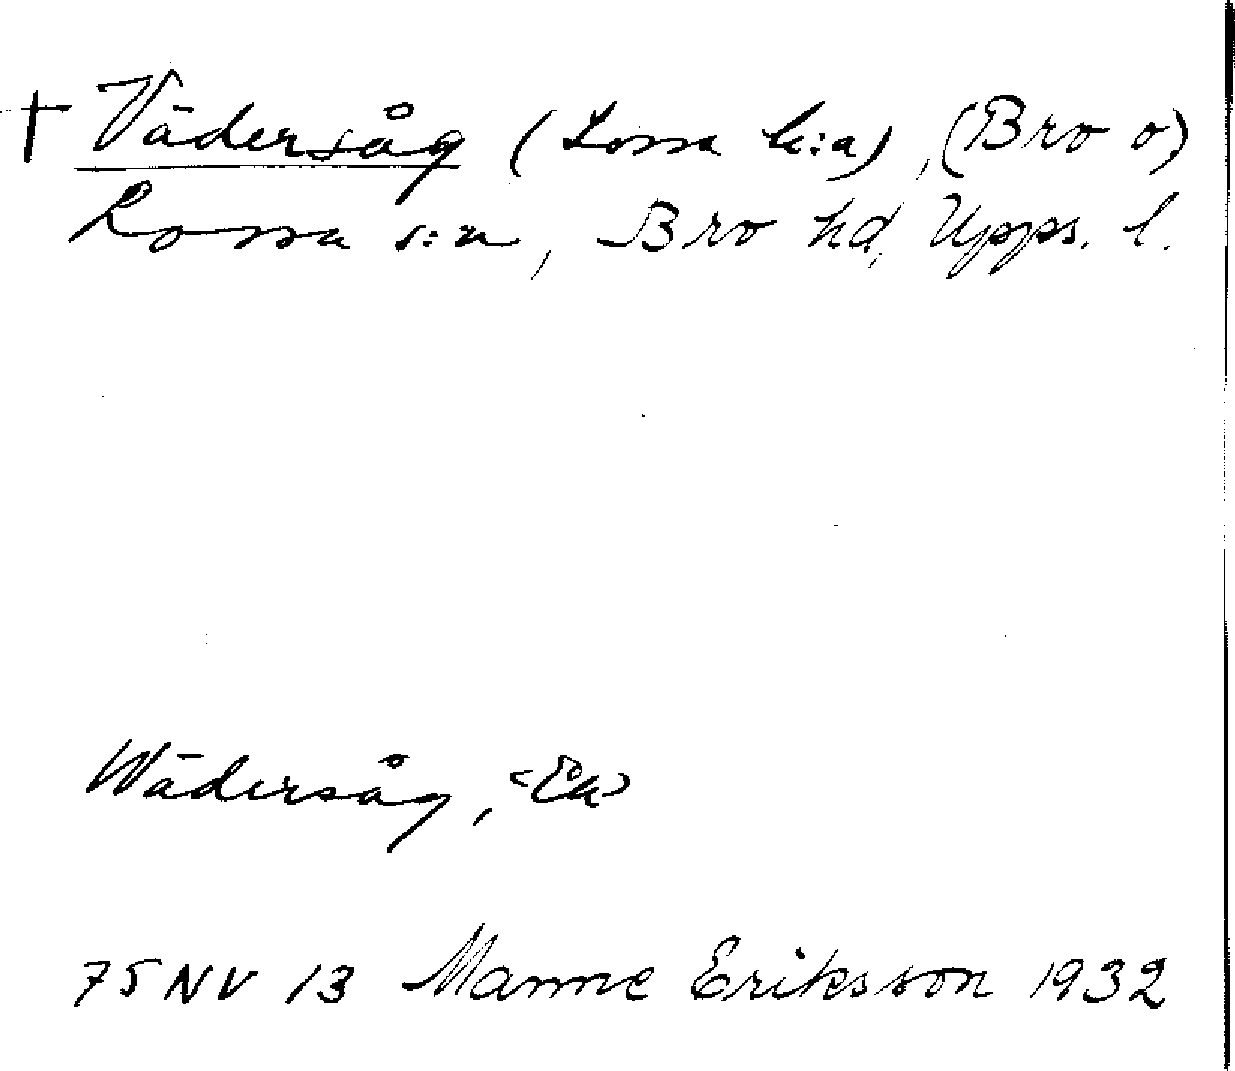 † Vädersåg (Lossa k:a), (Bro o)
Lossa s:n, Bro hd, Upps. l.
Wädersåg, <Ek>
75 NV 13 Manne Eriksson 1932